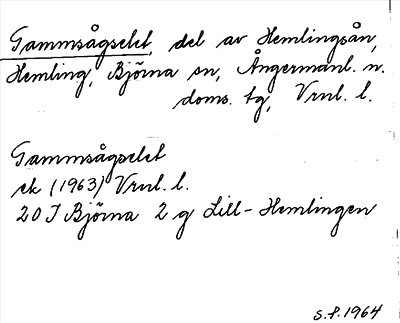 Gammsågselet, del av Hemlingsån,
Hemling, Björna sn, Ångermanl. n.
doms. tg, Vrnl. l.
Gammsågselet
ek (1963) Vrnl. l.
20 J Björna 2 g Lill-Hemlingen
S.F. 1964